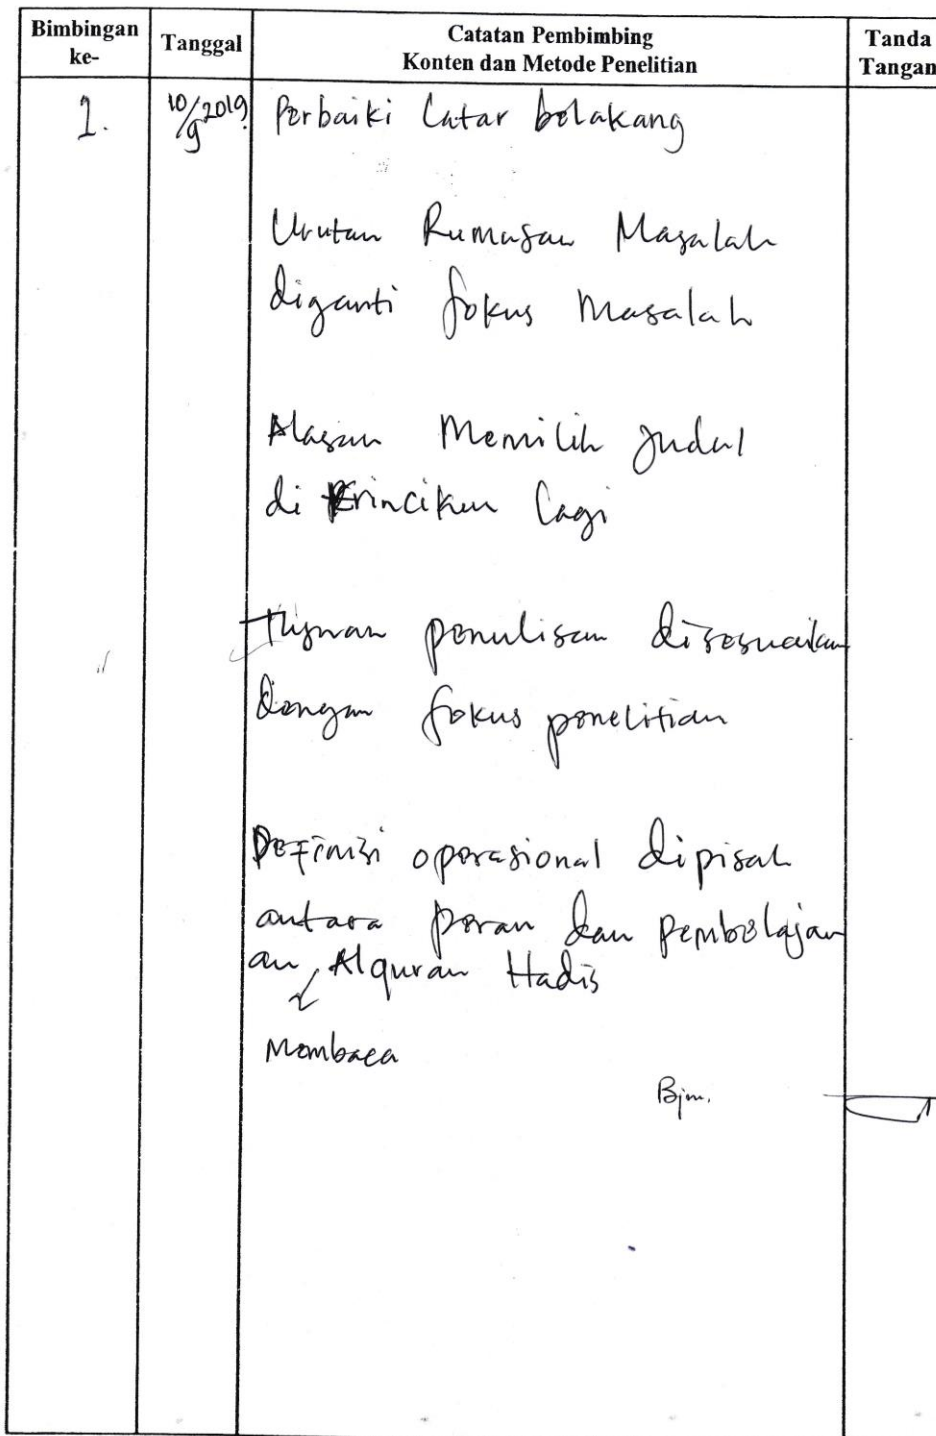 Bimbingan ke-
Tanggal
Catatan Pembimbing
Konten dan Metode Penelitian
Tanda Tangan
1.
10/9 2019
Perbaiki Latar belakang
Urutan Rumusan Masalah
diganti fokus Masalah
Alasan Memilih judul
di Rincikan lagi
Tujuan penulisan disesuaikan
dengan fokus penelitian
Definisi operasional dipisah
antara peran dan pembelajar
an, Alquran Hadis
Membaca
Bjm.